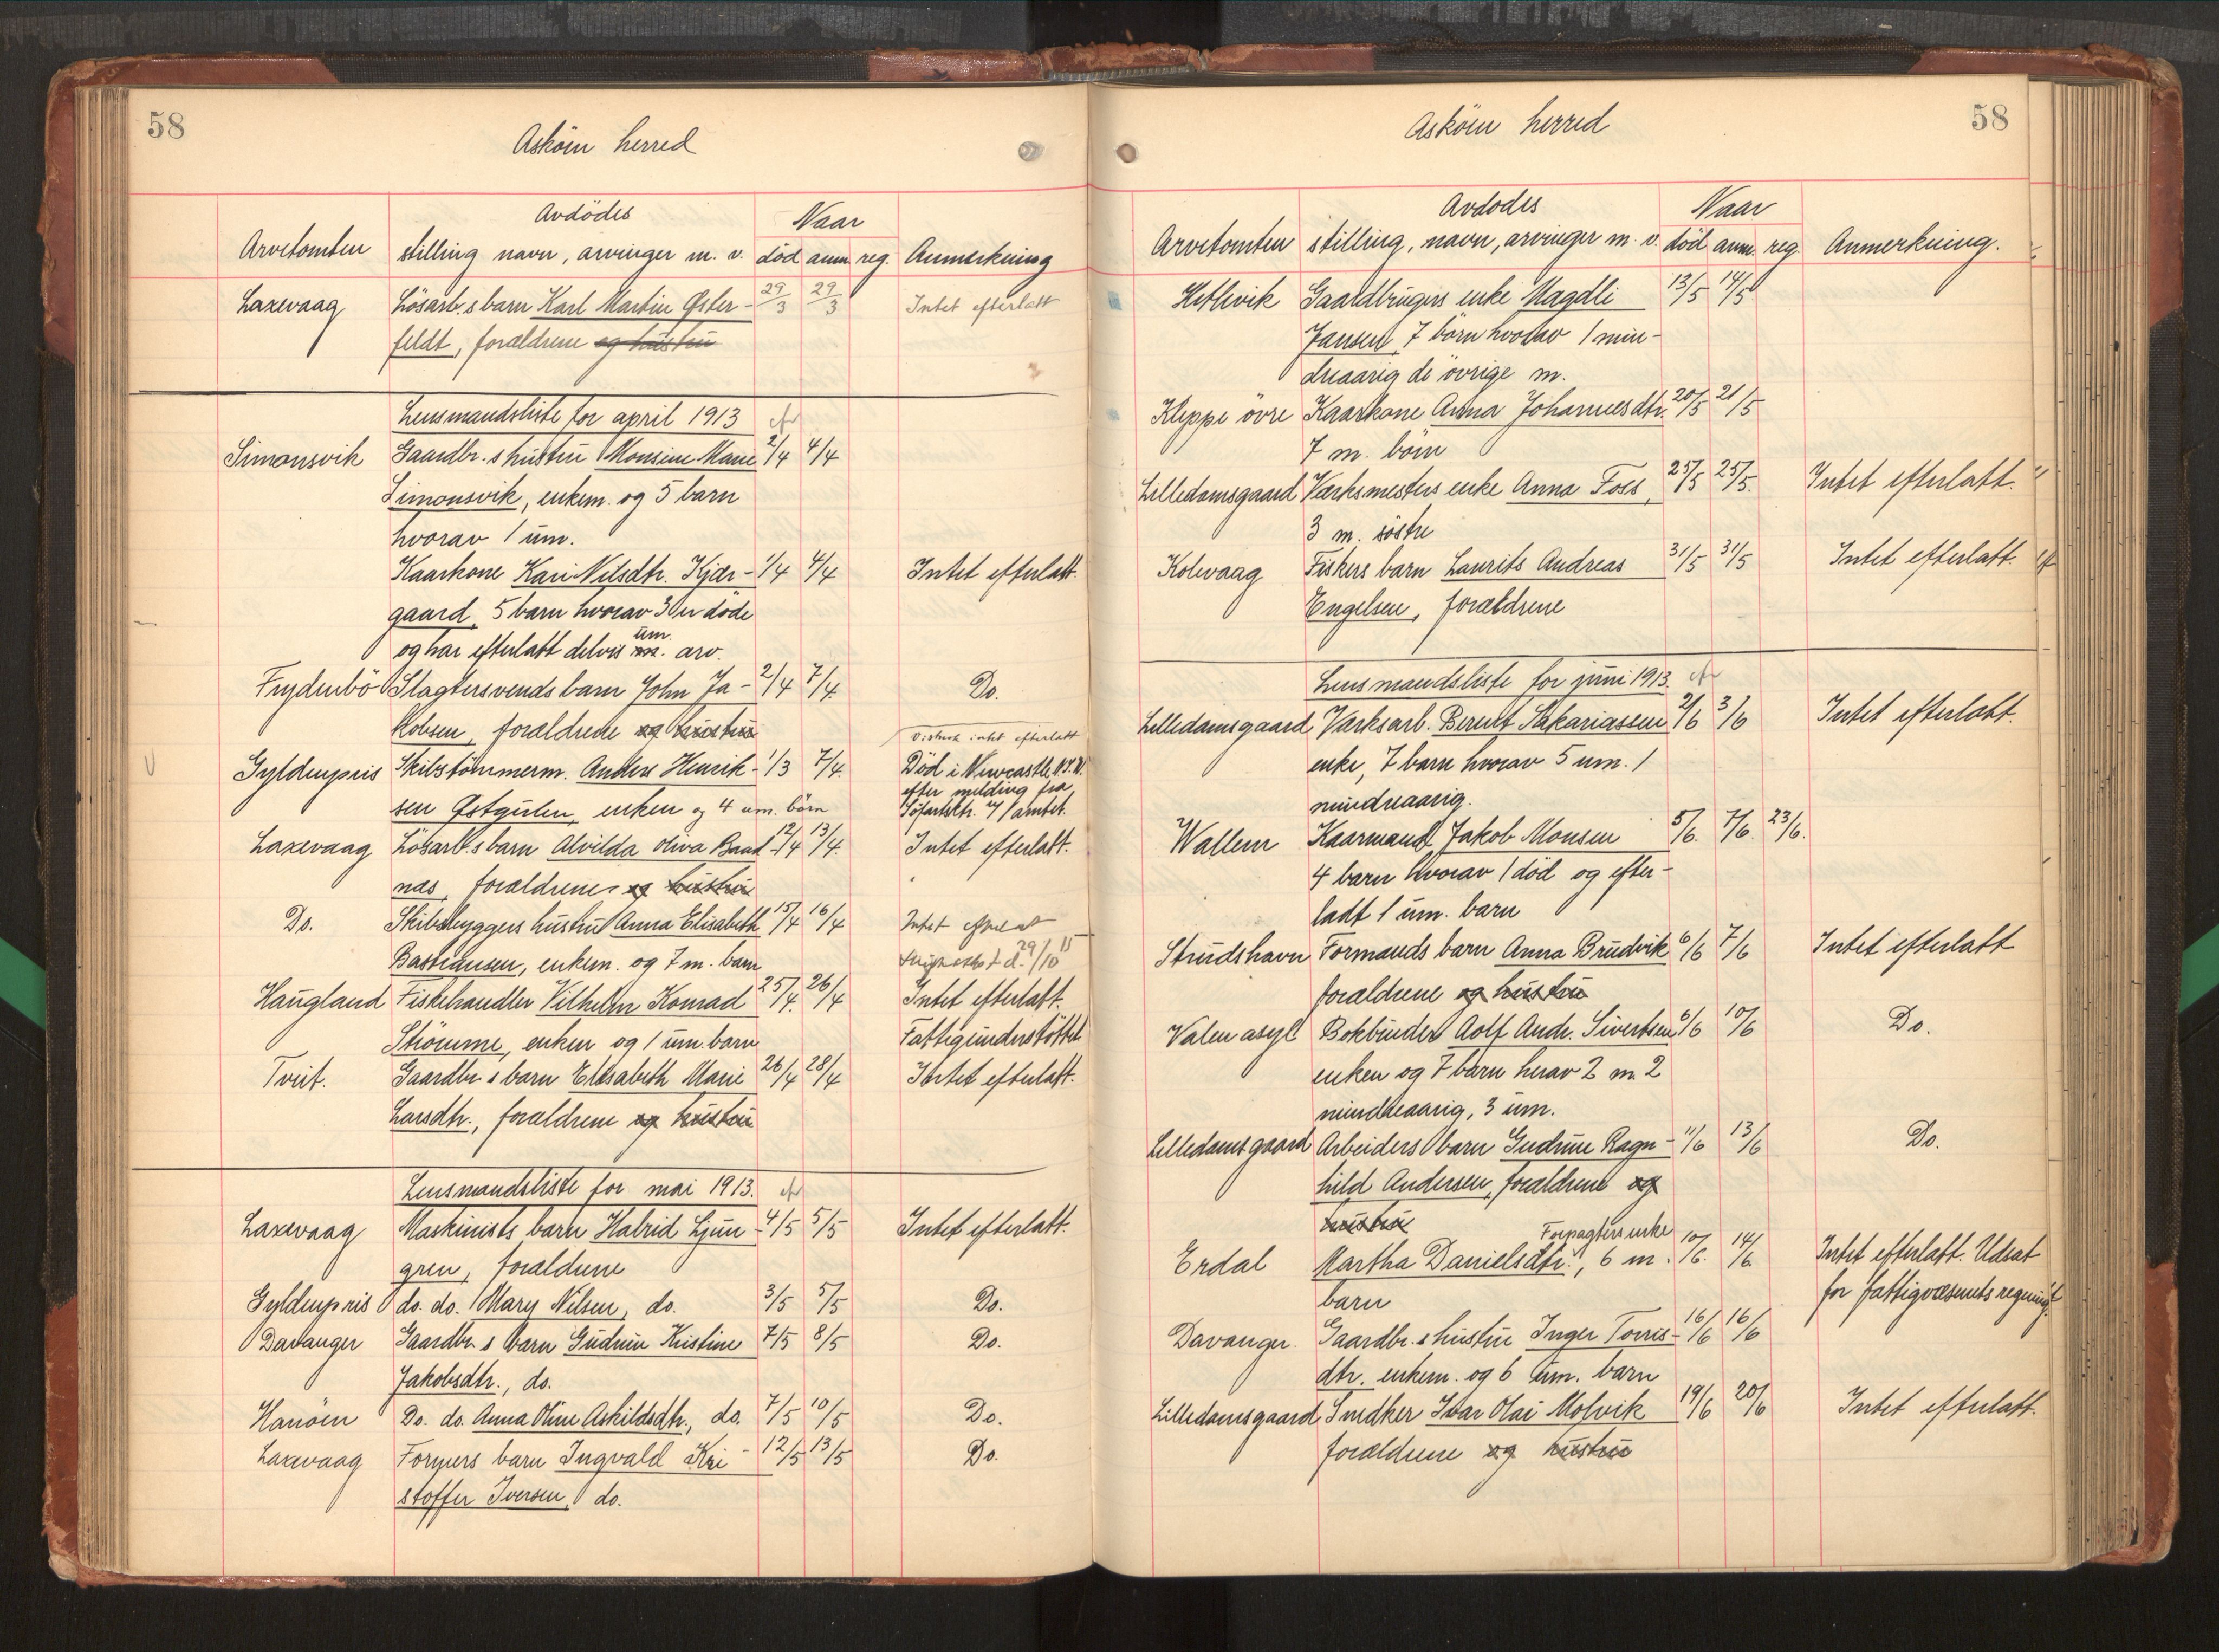 58
Asköen herred
Avdödes Naar
Arvetomten stilling navn, arvinger m. v. död anm. reg. Anmerkning
Laxevaag Lösarb.s barn Karl Martin Øster- 29/3 29/3 Intet efterlatt
feldt, forældrene og hustru
Lensmandsliste for april 1913
Simonsvik Gaardbr.s hustru Monsine Marie 2/4 4/4
Simonsvik, enkem. og 5 barn
hvorav 1 um.
Kaarkone Kari Nilsdtr. Kjær- 1/4 4/4 Intet efterlatt.
gaard, 5 barn hvorav 3 er döde
um.
og har efterlatt delvis m. arv.
Frydenbö Slagtersvends barn John Ja- 2/4 7/4 Do.
kobsen, forældrene og hustru
intet efterlatt
Gyldenpris Skibstömmerm. Anders Henrik- 1/3 7/4 Död i Newcastle N.S.W.
efter melding fra
sen Østgulen, enken og 4 um. börn
Laxevaag Lösarb.s barn Alvilda Oliva Baad- 12/4 13/4 Intet efterlatt.
næs, forældrene og hustru
Do. Skibsbyggers hustru Anna Elisabeth 15/4 16/4 Intet efterlat
Bastiansen, enkem. og 7 m. barn d. 29/10 15
Haugland Fiskehandler Vilhelm Konrad 25/4 26/4 Intet efterlatt.
Strömme, enken og 1 um. barn Fattigunderstöttet
Tveit. Gaardbr.s barn Elisabeth Marie 26/4 28/4 Intet efterlatt.
Larsdtr., forældrene og hustru
Lensmandsliste for mai 1913.
Laxevaag Maskinists barn Halrid Ljun- 4/5 5/5 Intet efterlatt.
gren, forældrene
Gyldenpris do. do. Mary Nilsen, do. 3/5 5/5 Do.
Davanger Gaardbr.s barn Gudrun Kristine 7/5 8/5 Do.
Jakobsdtr., do.
Hanöen Do. do. Anna Oline Askildsdtr., do. 7/5 10/5 Do.
Laxevaag Formers barn Ingvald Kri- 12/5 13/5 Do.
stoffer Iversen, do.
58
Asköen herred
Avdodes Naar
Arvetomten stilling, navn, arvinger m. v. död anm. reg. Anmerkning.
Hetlevik Gaardbrugers enke Magdli 13/5 14/5
Jansen, 7 börn hvorav 1 min-
dreaarig de övrige m.
Kleppe övre Kaarkone Anna Johannesdtr. 20/5 21/5
7 m. börn
Lilledamsgaard Værksmesters enke Anna Foss, 25/5 25/5. Intet efterlatt.
3 m. söstre
Kolevaag Fiskers barn Laurits Andreas 31/5 31/5 Intet efterlatt.
Engelsen, forældrene
Lensmandsliste for juni 1913.
Lilledamsgaard Værksarb. Bernt Sakariassen 2/6 3/6 Intet efterlatt.
enke, 7 barn hvorav 5 um. 1
mindreaarig.
Wallem Kaarmand Jakob Monsen 5/6. 7/6. 23/6.
4 barn hvorav 1 död og efter-
ladt 1 um. barn
Strudshavn Formands barn Anna Brudvik 6/6 7/6 Intet efterlatt
forældrene og hustru
Valen asyl Bokbinder Aolf Andr. Sivertsen 6/6 10/6 Do.
enken og 7 barn herav 2 m. 2
mindreaarig, 3 um.
Lilledamsgaard Arbeiders barn Gudrun Ragn- 11/6 13/6 Do.
hild Andersen, forældrene og
hustru
Forpagters enke
Erdal Martha Danielsdtr., 6 m. 10/6. 14/6 Intet efterlatt. Udsat
barn for fattigvæsenets regning.
Davanger. Gaardbr.s hustru Inger Torris- 16/6 16/6
dtr. enkem. og 6 um. barn
Lilledamsgaard Snedker Ivar Olai Molvik 19/6 20/6 Intet efterlatt.
forældrene og hustru